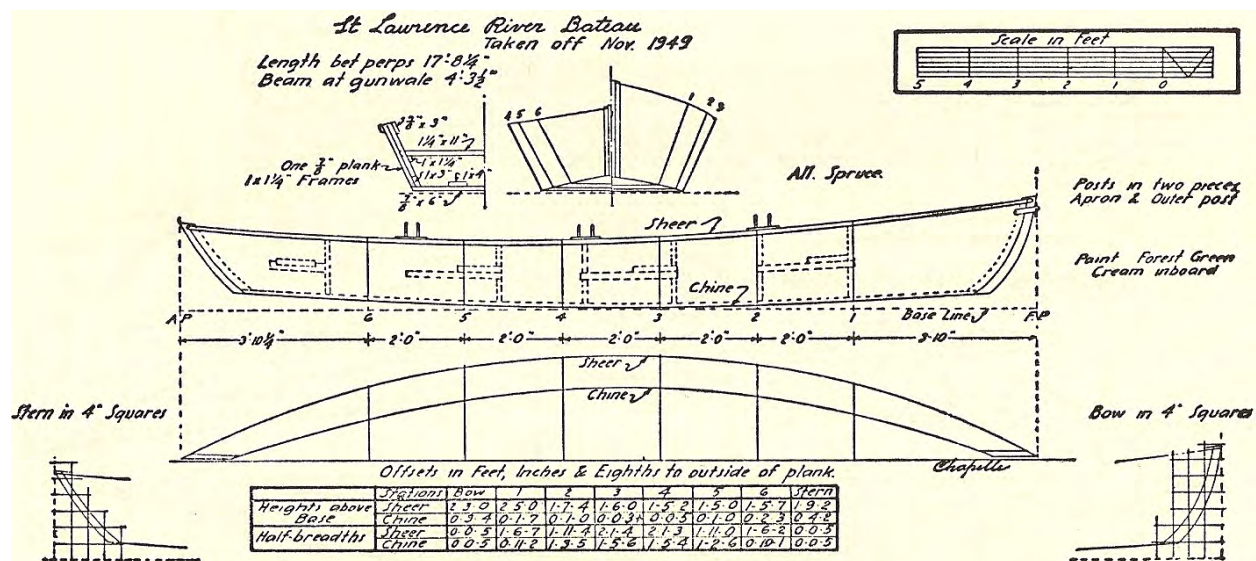 St Lawrence River Bateau
Taken off Nov. 1949
Length bet perps 17'-8¼"
Beam at gunwale 4'-3½"
Scale in Feet
5 4 3 2 1 0
4 5 6
1 2 3
1¼" x 11"
1" x 1¼"
1 x 3"
1 x 4"
One ⅞" plank
1 x 1¼" Frames
⅞" x 6"
All Spruce
Posts in two pieces
Apron & Outer post
Sheer
Paint Forest Green
Cream inboard
Chine
A.P. 6 5 4 3 2 1 Base Line F.P.
3'-10¼" 2'-0" 2'-0" 2'-0" 2'-0" 2'-0" 3'-10"
Sheer
Chine
Stern in 4" Squares
Bow in 4" Squares
Chapelle
Offsets in Feet, Inches & Eighths to outside of plank.
Stations Bow 1 2 3 4 5 6 Stern
Heights above Base Sheer 2-3-0 2-5-0 1-7-4 1-6-0 1-5-2 1-5-0 1-5-7 1-9-2
Chine 0-3-4 0-1-7 0-1-0 0-0-3+ 0-0-5 0-1-0 0-2-3 0-4-2
Half-breadths Sheer 0-0-5 1-6-7 1-11-4 2-1-4 2-1-3 1-11-0 1-6-2 0-0-5
Chine 0-0-5 0-11-2 1-3-5 1-5-6 1-5-4 1-2-6 0-10-1 0-0-5